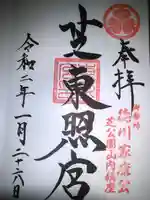 奉拝
徳川家康公
芝公園山内鎮座
芝東照宮
令和二年一月二十六日